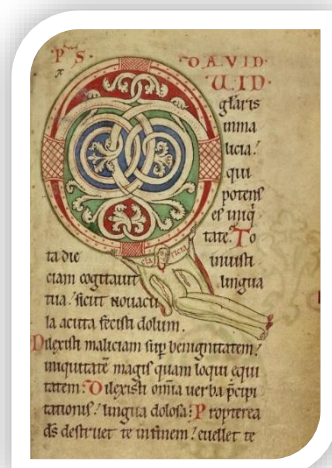 PS DAVID
UID
glaris
inma
licia?
qui
potens
es iniq
tate. To
ta die inuisti
ciam cogitauit lingua
tua. sicut nouacu
la acuta fecisti dolum.
Dilexisti maliciam sup benignitatem?
iniquitatē magis quam loqui equi
tatem: Dilexisti omīa uerba p̄cipi
tationis? lingua dolosa: Propterea
ds destruet te in finem? euellet te